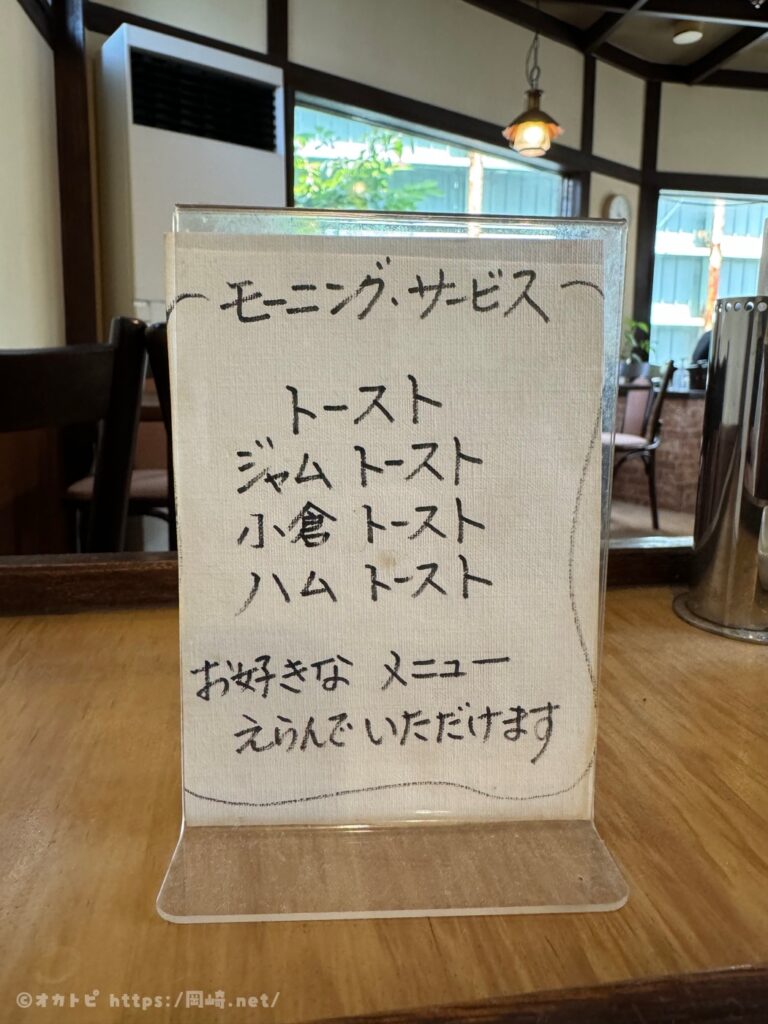 モーニング・サービス
トースト
ジャム トースト
小倉 トースト
ハム トースト
お好きな メニュー
えらんで いただけます
©オカトピ https:/岡崎.net/